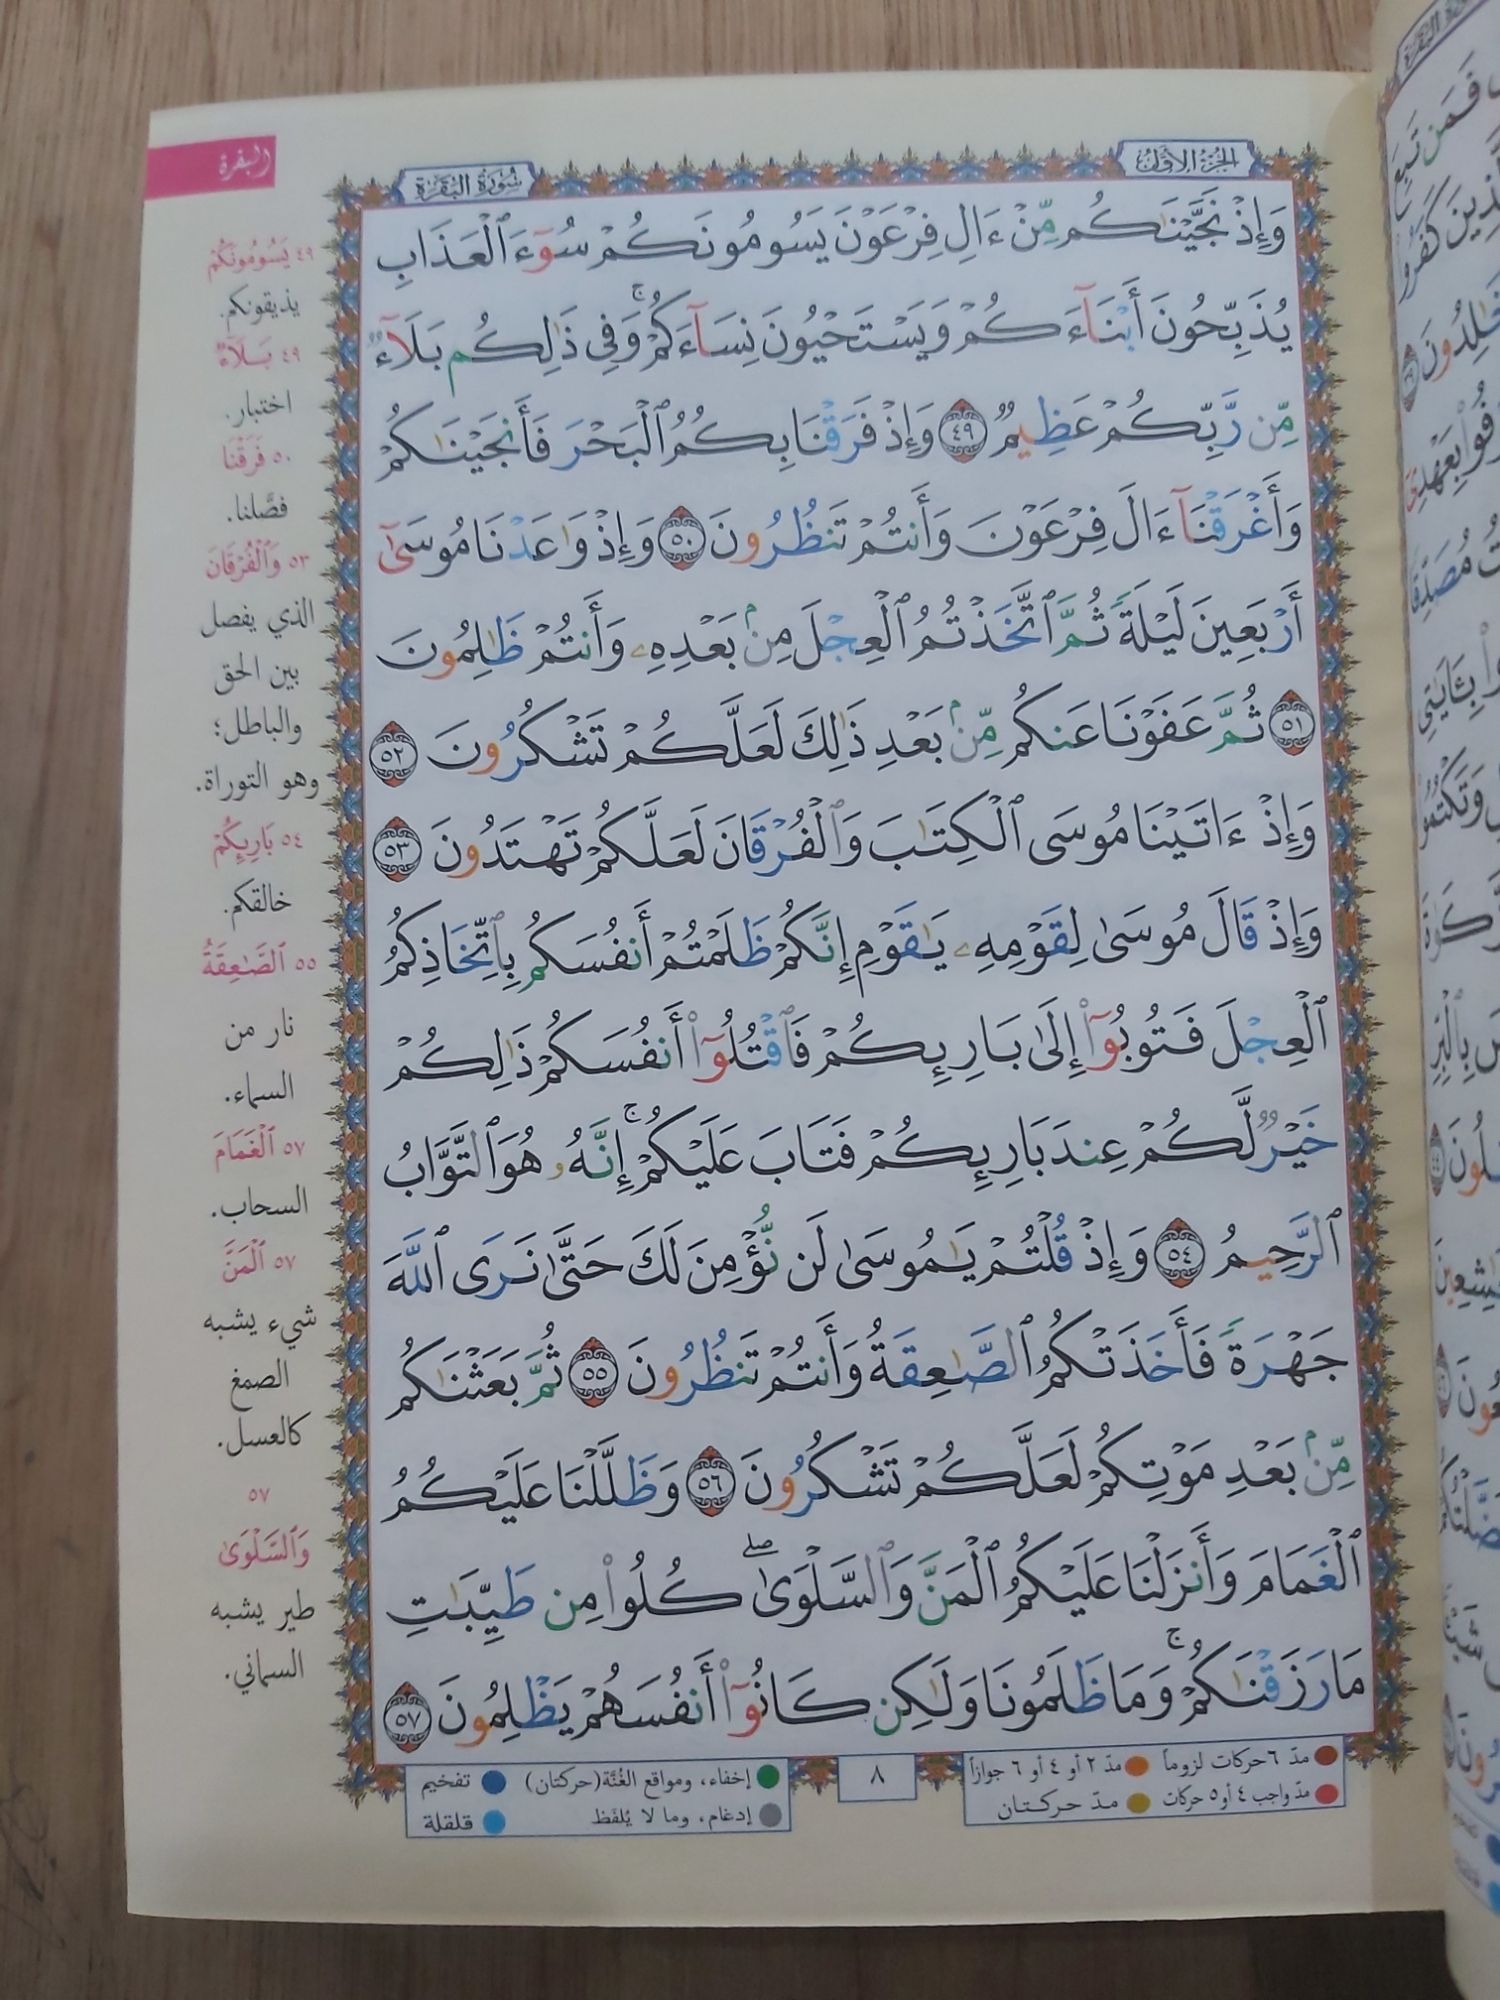 الجزء الأول
سورة البقرة
وَإِذْ نَجَّيْنَٰكُم مِّنْ ءَالِ فِرْعَوْنَ يَسُومُونَكُمْ سُوٓءَ ٱلْعَذَابِ
يُذَبِّحُونَ أَبْنَآءَكُمْ وَيَسْتَحْيُونَ نِسَآءَكُمْ ۚ وَفِى ذَٰلِكُم بَلَآءٌ
مِّن رَّبِّكُمْ عَظِيمٌ ٤٩ وَإِذْ فَرَقْنَا بِكُمُ ٱلْبَحْرَ فَأَنجَيْنَٰكُمْ
وَأَغْرَقْنَآ ءَالَ فِرْعَوْنَ وَأَنتُمْ تَنظُرُونَ ٥٠ وَإِذْ وَٰعَدْنَا مُوسَىٰٓ
أَرْبَعِينَ لَيْلَةً ثُمَّ ٱتَّخَذْتُمُ ٱلْعِجْلَ مِنۢ بَعْدِهِۦ وَأَنتُمْ ظَٰلِمُونَ
٥١ ثُمَّ عَفَوْنَا عَنكُم مِّنۢ بَعْدِ ذَٰلِكَ لَعَلَّكُمْ تَشْكُرُونَ ٥٢
وَإِذْ ءَاتَيْنَا مُوسَى ٱلْكِتَٰبَ وَٱلْفُرْقَانَ لَعَلَّكُمْ تَهْتَدُونَ ٥٣
وَإِذْ قَالَ مُوسَىٰ لِقَوْمِهِۦ يَٰقَوْمِ إِنَّكُمْ ظَلَمْتُمْ أَنفُسَكُم بِٱتِّخَاذِكُمُ
ٱلْعِجْلَ فَتُوبُوٓا۟ إِلَىٰ بَارِئِكُمْ فَٱقْتُلُوٓا۟ أَنفُسَكُمْ ذَٰلِكُمْ
خَيْرٌ لَّكُمْ عِندَ بَارِئِكُمْ فَتَابَ عَلَيْكُمْ ۚ إِنَّهُۥ هُوَ ٱلتَّوَّابُ
ٱلرَّحِيمُ ٥٤ وَإِذْ قُلْتُمْ يَٰمُوسَىٰ لَن نُّؤْمِنَ لَكَ حَتَّىٰ نَرَى ٱللَّهَ
جَهْرَةً فَأَخَذَتْكُمُ ٱلصَّٰعِقَةُ وَأَنتُمْ تَنظُرُونَ ٥٥ ثُمَّ بَعَثْنَٰكُم
مِّنۢ بَعْدِ مَوْتِكُمْ لَعَلَّكُمْ تَشْكُرُونَ ٥٦ وَظَلَّلْنَا عَلَيْكُمُ
ٱلْغَمَامَ وَأَنزَلْنَا عَلَيْكُمُ ٱلْمَنَّ وَٱلسَّلْوَىٰ ۖ كُلُوا۟ مِن طَيِّبَٰتِ
مَا رَزَقْنَٰكُمْ ۚ وَمَا ظَلَمُونَا وَلَٰكِن كَانُوٓا۟ أَنفُسَهُمْ يَظْلِمُونَ ٥٧
البقرة
٤٩ يَسُومُونَكُمْ
يذيقونكم.
٤٩ بَلَآءٌ
اختبار.
٥٠ فَرَقْنَا
فصَّلنا.
٥٣ وَٱلْفُرْقَانَ
الذي يفصل
بين الحق
والباطل؛
وهو التوراة.
٥٤ بَارِئِكُمْ
خالقكم.
٥٥ ٱلصَّٰعِقَةُ
نار من
السماء.
٥٧ ٱلْغَمَامَ
السحاب.
٥٧ ٱلْمَنَّ
شيء يشبه
الصمغ
كالعسل.
٥٧
وَٱلسَّلْوَىٰ
طير يشبه
السماني.
مدّ ٦ حركات لزوماً مدّ ٢ أو ٤ أو ٦ جوازاً
مدّ واجب ٤ أو ٥ حركات مدّ حركتان
٨
إخفاء، ومواقع الغُنَّة (حركتان) تفخيم
إدغام، وما لا يُلفَظ قلقلة